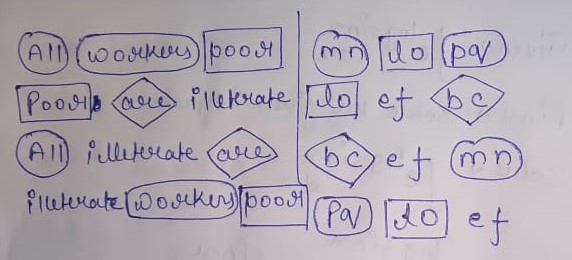 All workers poor mn lo pq
Poor are illiterate lo ef bc
All illiterate are bc ef mn
illiterate workers poor pq lo ef